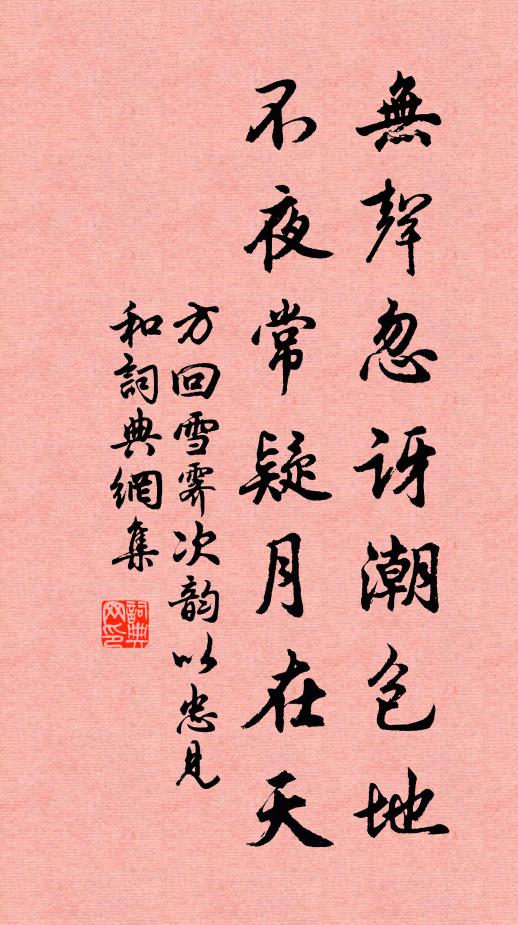 無聲忽訝潮包地
不夜常疑月在天
方回雪霽次韵以忠見
和詞典網集
詞典網印